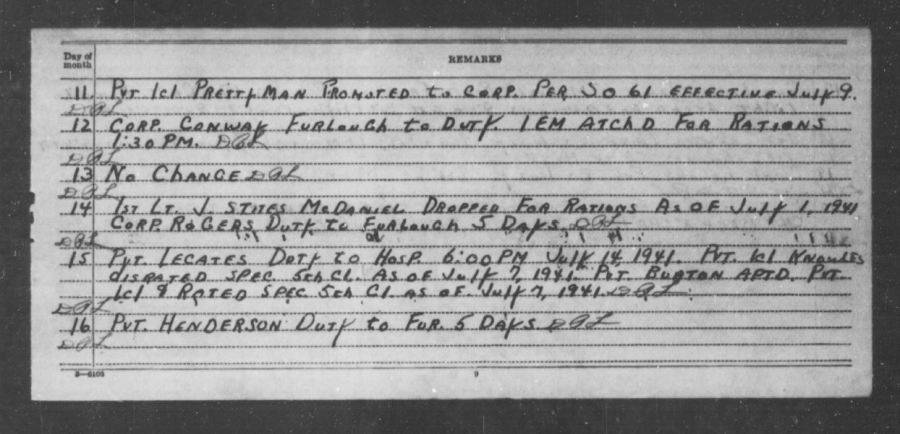 Day of
month
REMARKS
11 PVT 1cl PRETTYMAN PROMOTED to CORP. PER SO 61 EFFECTIVE JULY 9.
DGL
12 CORP. CONWAY FURLOUGH to DUTY. 1 EM ATCHD FOR RATIONS
1:30 PM. DGL
DGL
13 NO CHANGE DGL
DGL
14 1ST LT. J. STITES McDANIEL DROPPED FOR RATIONS AS OF JULY 1, 1941
CORP. ROGERS DUTY to FURLOUGH 5 DAYS DGL
DGL
15 PVT. LECATES DUTY to HOSP. 6:00 PM JULY 14, 1941. PVT. 1cl KNOWLES
DISRATED SPEC. 5th Cl. AS OF JULY 7, 1941. PVT. BURTON APTD. PVT.
1cl & RATED SPEC 5th Cl. AS OF JULY 7, 1941. DGL
DGL
16 PVT. HENDERSON DUTY to FUR. 5 DAYS DGL
DGL
3—6105
9